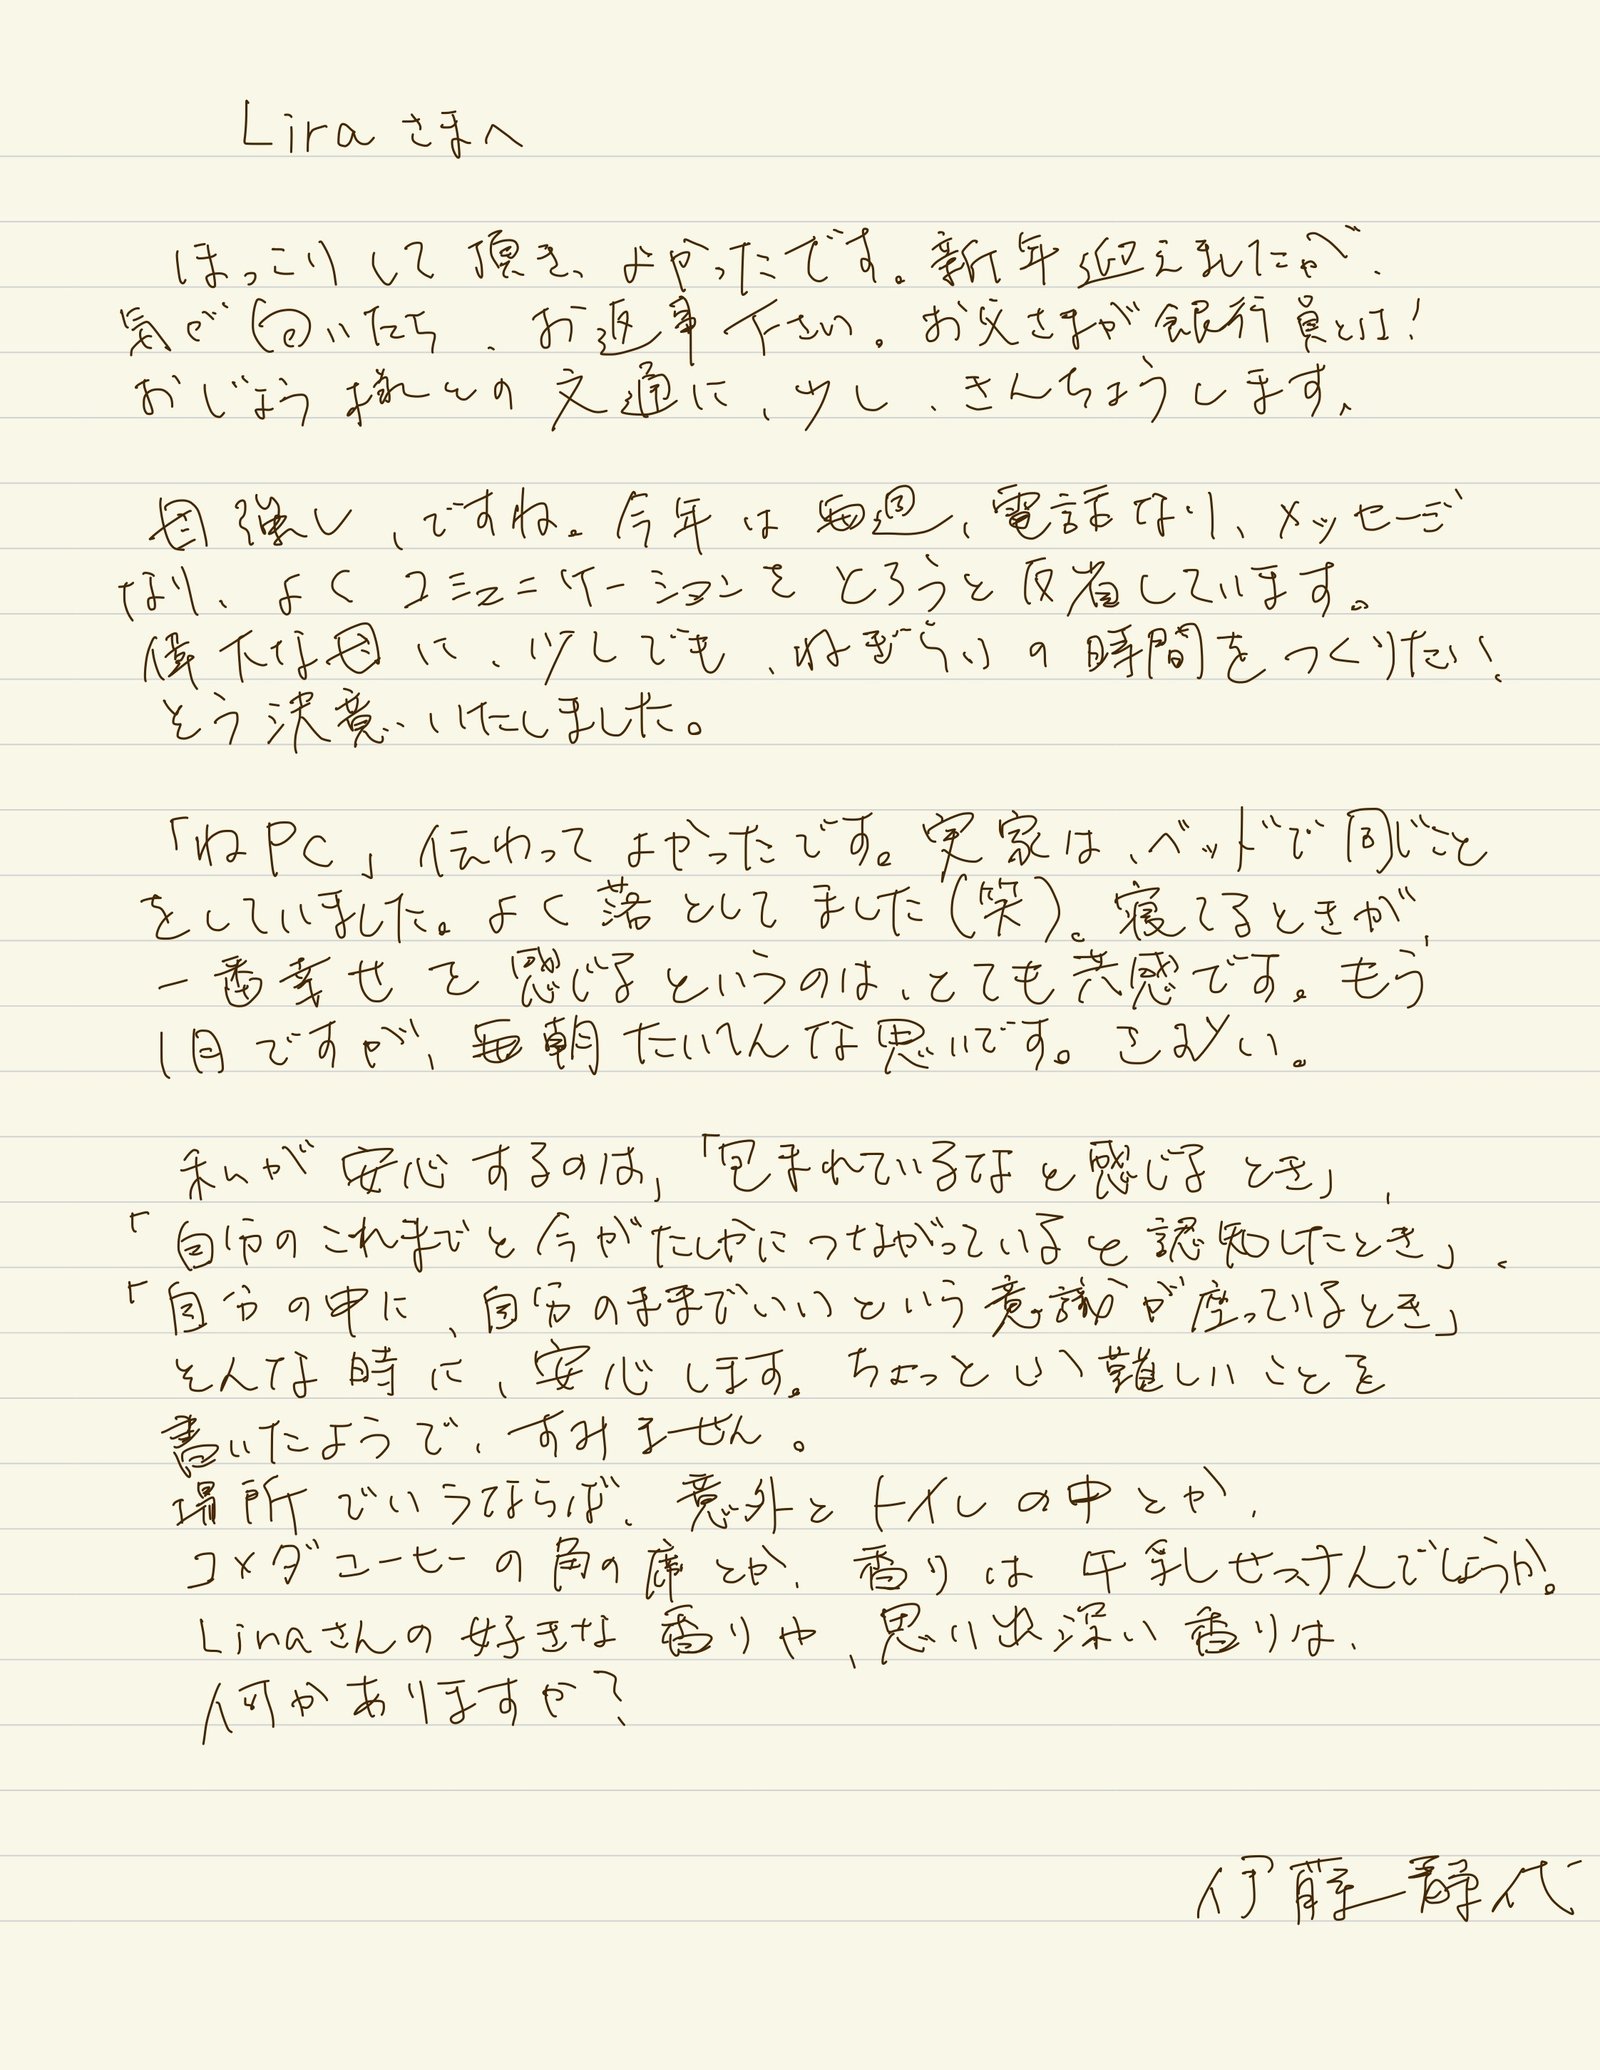 Liraさまへ
ほっこりして頂き、よかったです。新年迎えましたが、
気が向いたら、お返事下さい。お父さまが銀行員とは！
おじょう様との文通に、少し、きんちょうします、
母強し、ですね。今年は毎週、電話なり、メッセージ
なり、よくコミュニケーションをとろうと反省しています。
偉大な母に、少しでも、ねぎらいの時間をつくりたい！
そう決意いたしました。
「ねPC」伝わってよかったです。実家は、ベッドで同じこと
をしていました。よく落としてました（笑）。寝てるときが、
一番幸せを感じるというのは、とても共感です。もう
1月ですが、毎朝たいへんな思いです。さむい。
私が安心するのは、「包まれているなと感じるとき」、
「自分のこれまでと今がたしかにつながっていると認知したとき」、
「自分の中に、自分のままでいいという意識が座っているとき」
そんな時に、安心します。ちょっとい難しいことを
書いたようで、すみません。
場所でいうならば、意外とトイレの中とか、
コメダコーヒーの角の席とか、香りは牛乳せっけんでしょうか。
Liraさんの好きな香りや、思い出深い香りは、
何かありますか？
伊藤静代